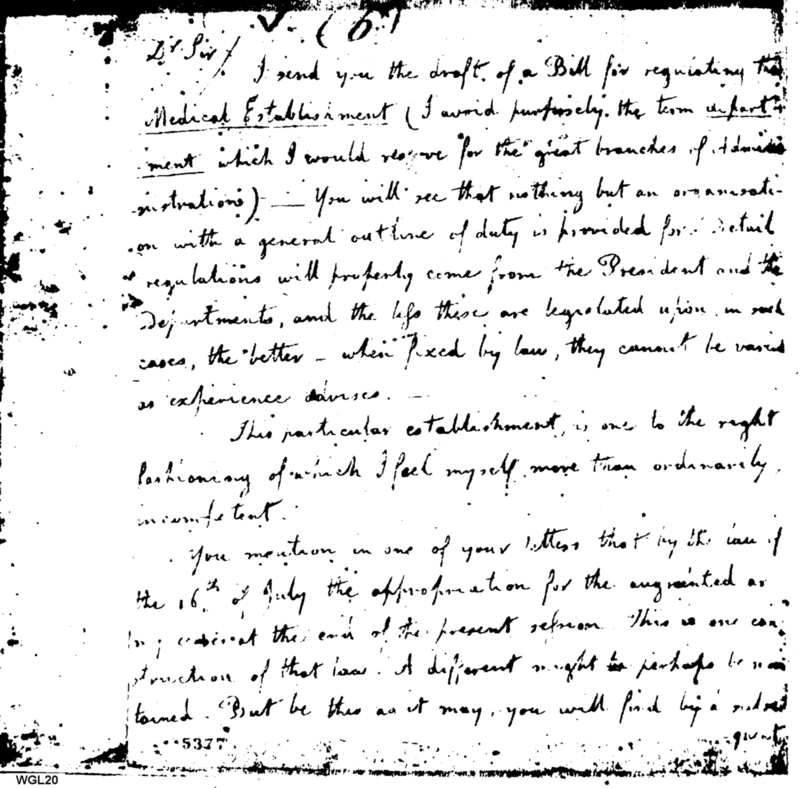 (6)
Dr Sir /
I send you the draft of a Bill for regulating the
Medical Establishment (I avoid purposely the term depart-
ment which I would reserve for the great branches of Admini-
nistrations) — You will see that nothing but an organisati-
on with a general outline of duty is provided for. Detail
regulations will properly come from the President and the
Departments, and the less these are legislated upon in such
cases, the better — when fixed by law, they cannot be varied
as experience advises. —
This particular establishment, is one to the right
fashioning of which I feel myself more than ordinarily
incompetent.
You mention in one of your letters that by the law of
the 16th of July the appropriation for the augmented ar
my ceases at the end of the present session. This is one con-
struction of that law. A different might perhaps be
tained. But be this as it may, you will find by a
quent
5377
WGL20